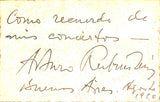 Como recuerdo de
mis conciertos —
Arturo Rubinstein
Buenos Aires Agosto